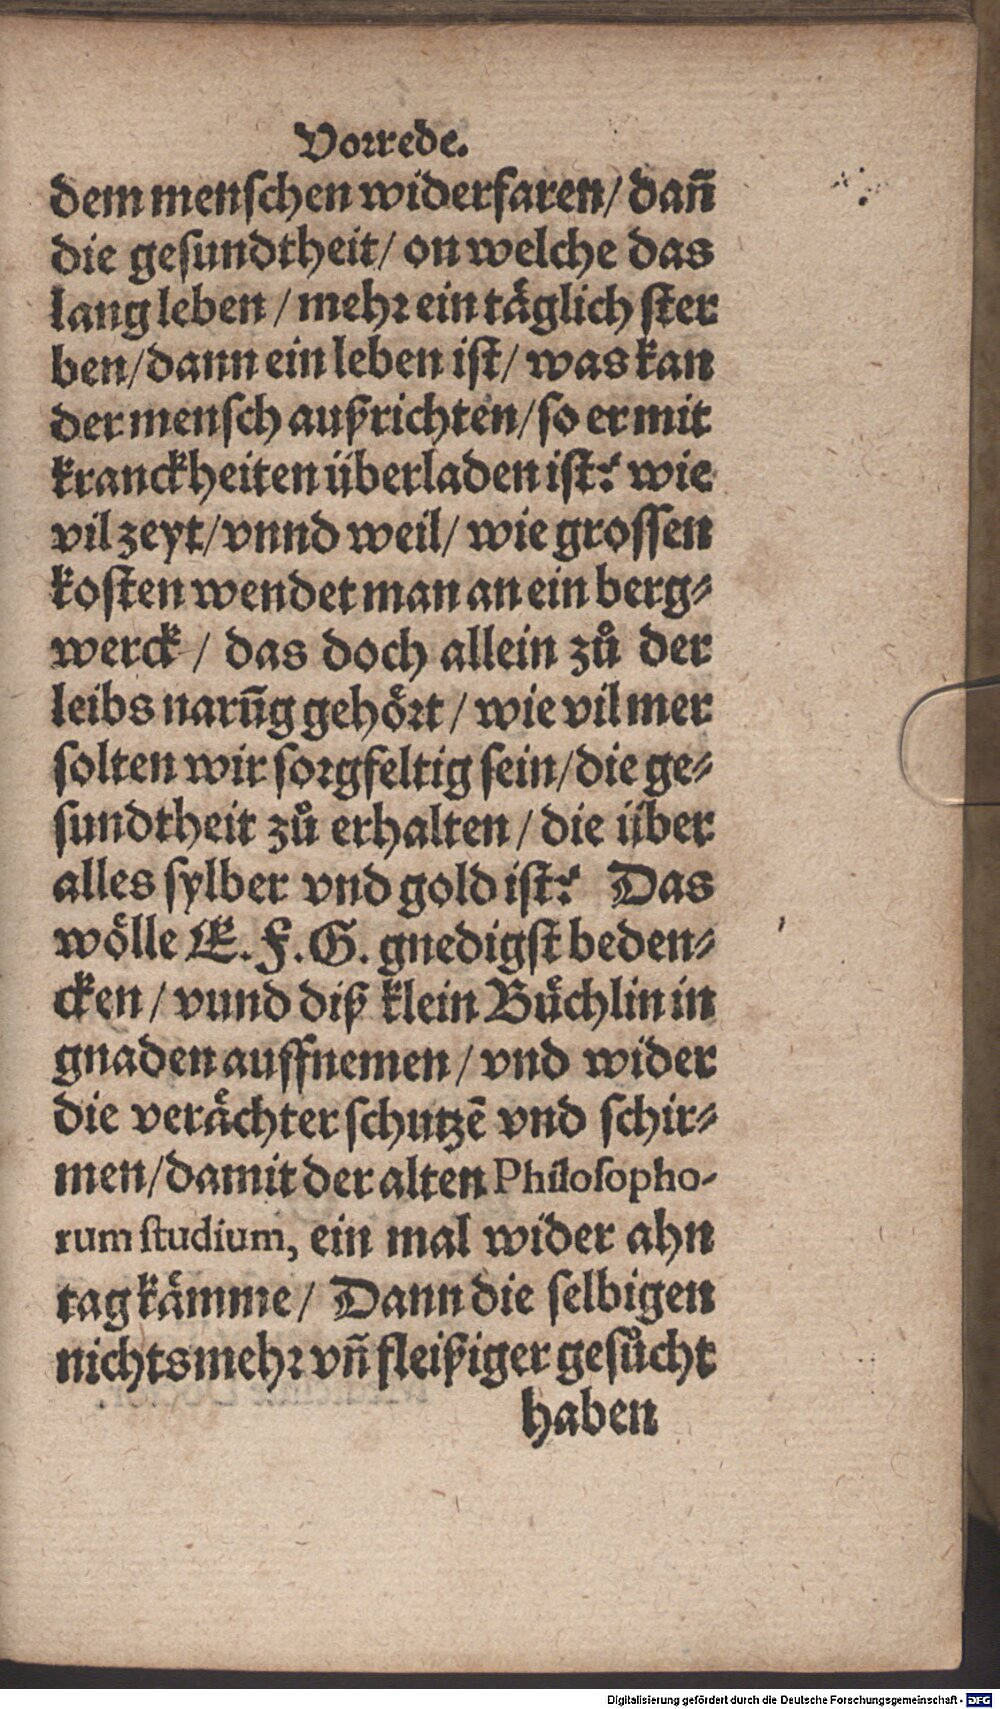 Vorrede.
dem menschen widerfaren/ dañ
die gesundtheit/ on welche das
lang leben / mehr ein täglich ster
ben/dann ein leben ist/ was kan
der mensch außrichten/so er mit
kranckheiten überladen ist? wie
vil zeyt/vnnd weil/ wie grossen
kosten wendet man an ein berg⸗
werck / das doch allein zů der
leibs narūg gehört / wie vil mer
solten wir sorgfeltig sein/die ge⸗
sundtheit zů erhalten / die über
alles sylber vnd gold ist? Das
wölle E. F. G. gnedigst beden⸗
cken / vund diß klein Bůchlin in
gnaden auffnemen / vnd wider
die verächter schutzē vnd schir⸗
men/damit der alten Philosopho-
rum studium, ein mal wider ahn
tag kämme/ Dann die selbigen
nichts mehr vñ fleißiger gesůcht
haben
Digitalisierung gefördert durch die Deutsche Forschungsgemeinschaft - DFG